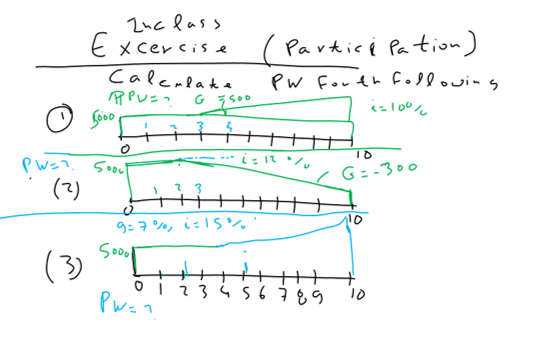 Inclass
Excercise (Participation)
Calculate PW for the following
PW=? G=500
(1) 5000 i=10%
1 2 3 4
0 10
PW=? 5000 i=12% G=-300
(2) 1 2 3
0 10
g=7%, i=15%
(3) 5000
0 1 2 3 4 5 6 7 8 9 10
PW=?